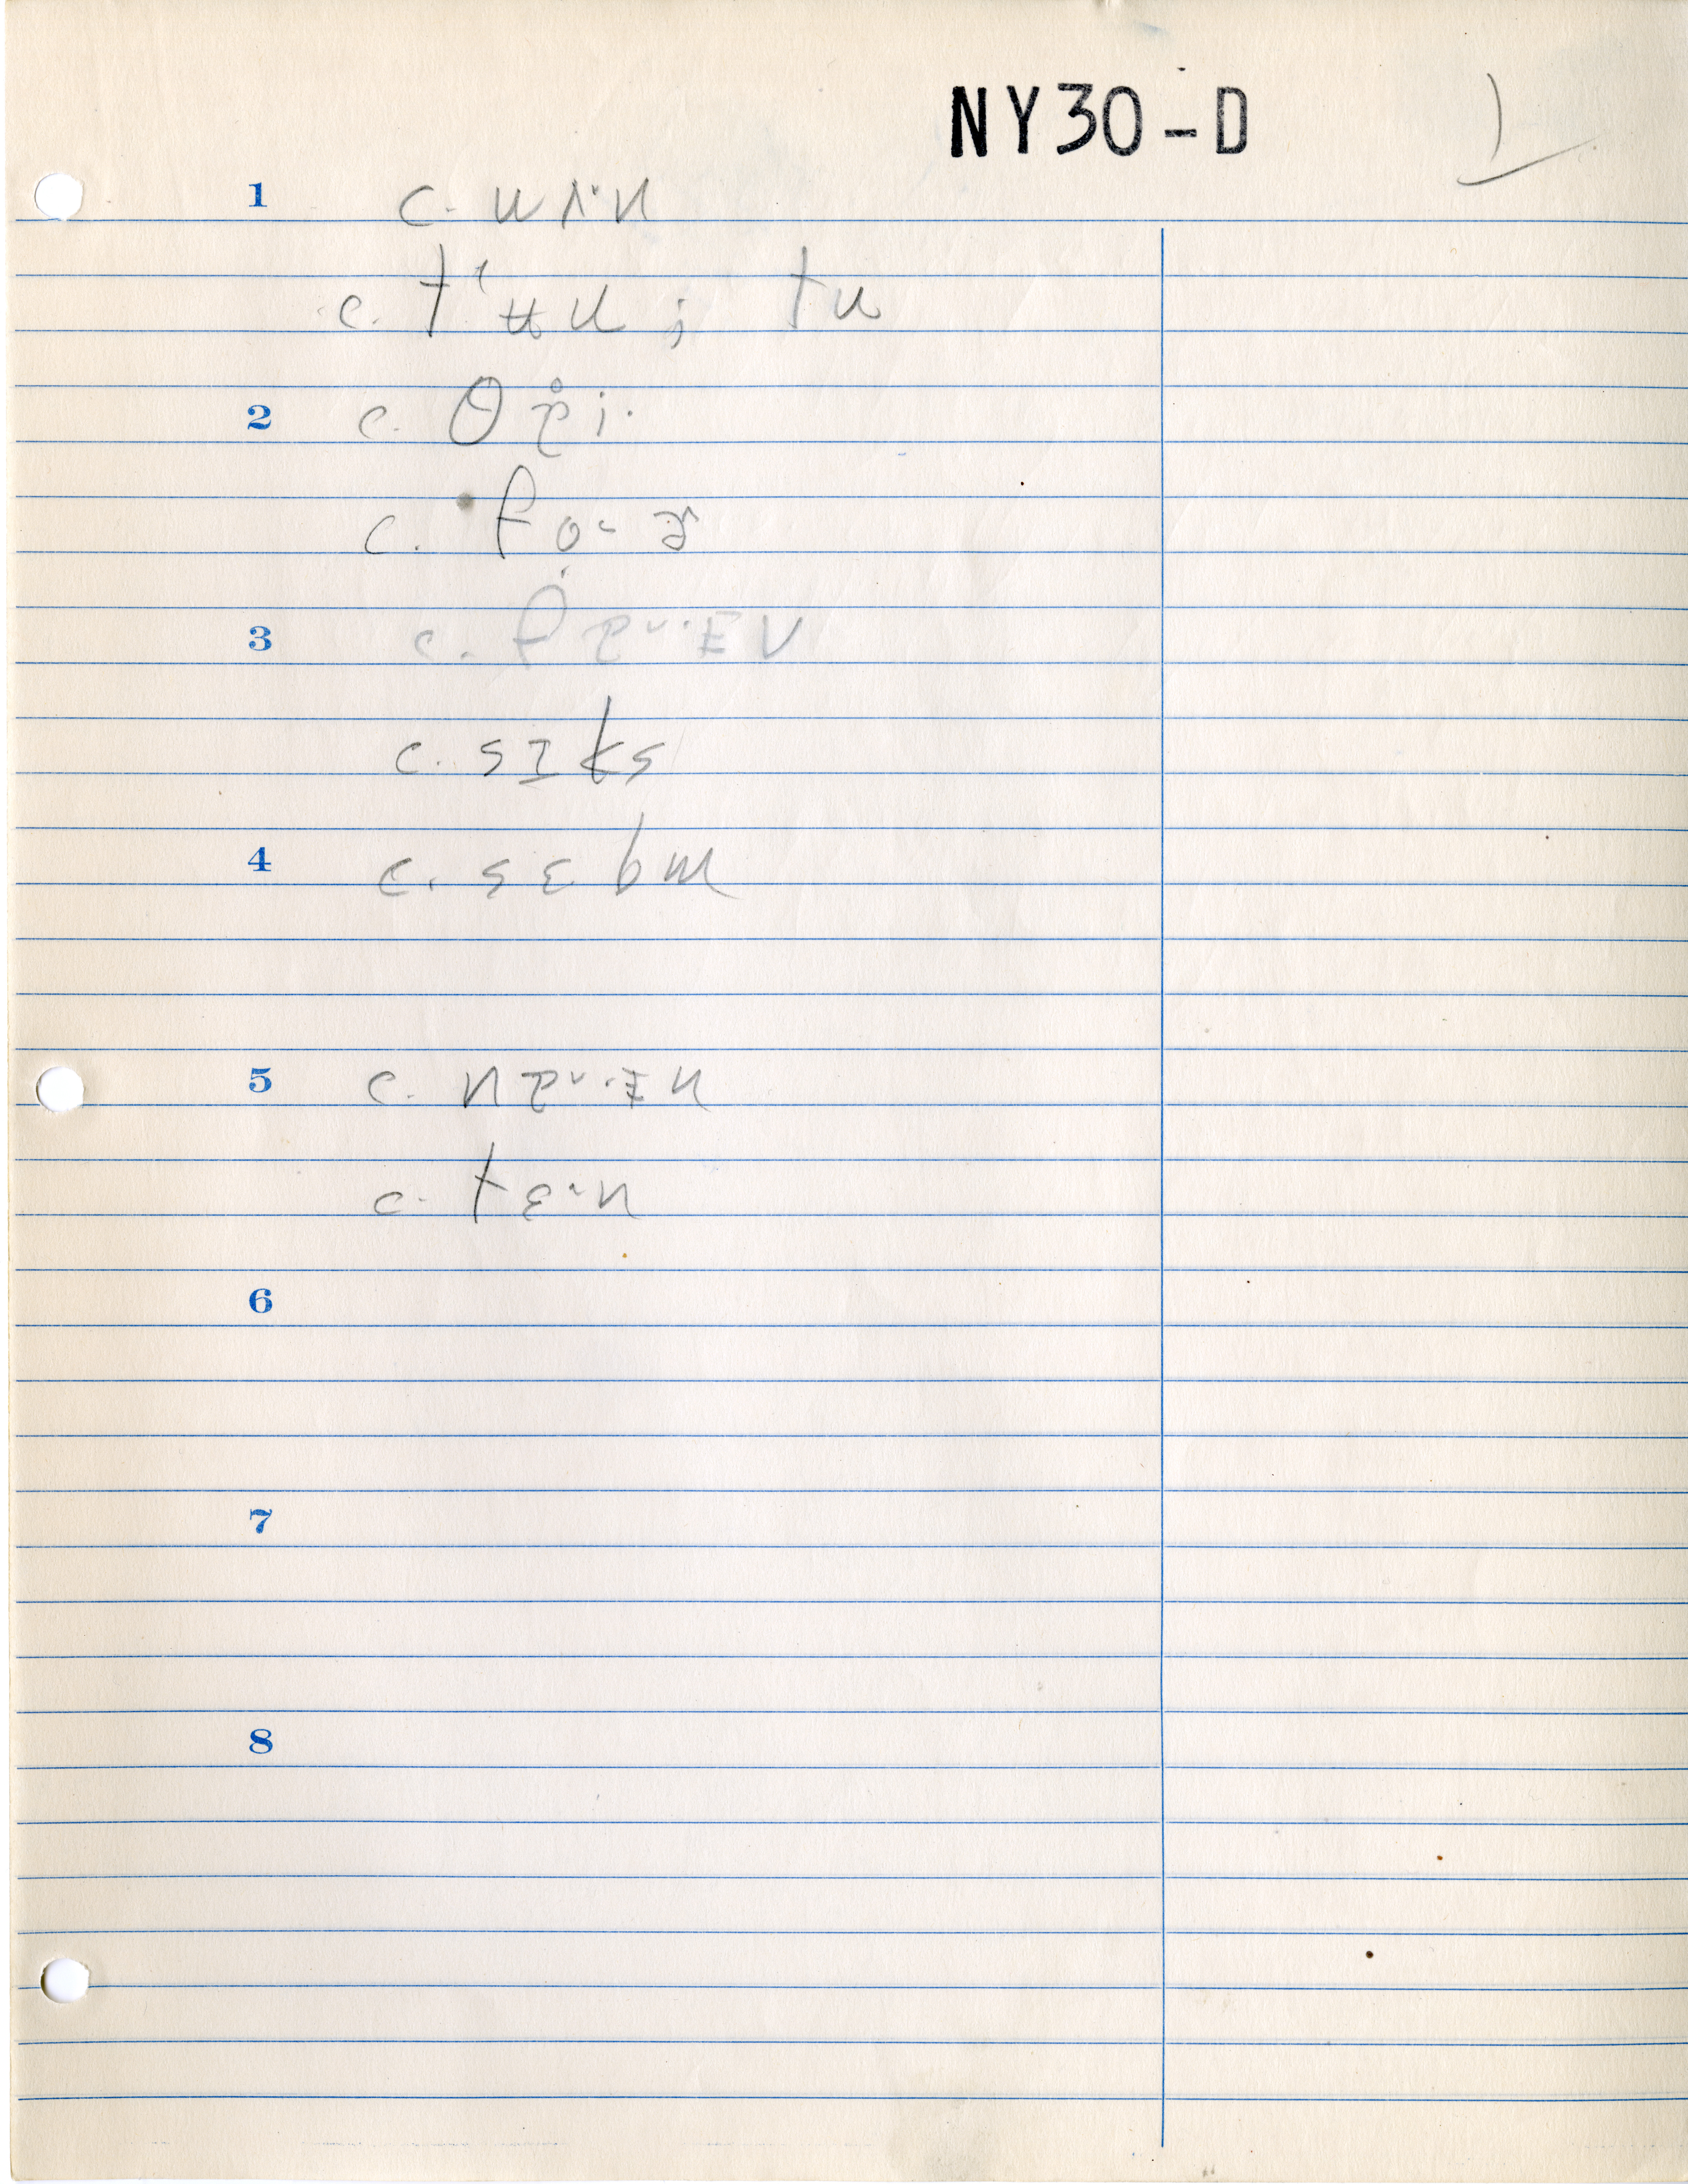 NY30-D 1
1 c. wʌ·n
c. tʻʉu ; tu
2 c. θr̥i·
c. foɚ
3 c. fɐᵛ·ɪv
c. sɪks
4 c. sɛbm
5 c. nɐᵛ·ɪn
c. tɛ·n
6
7
8